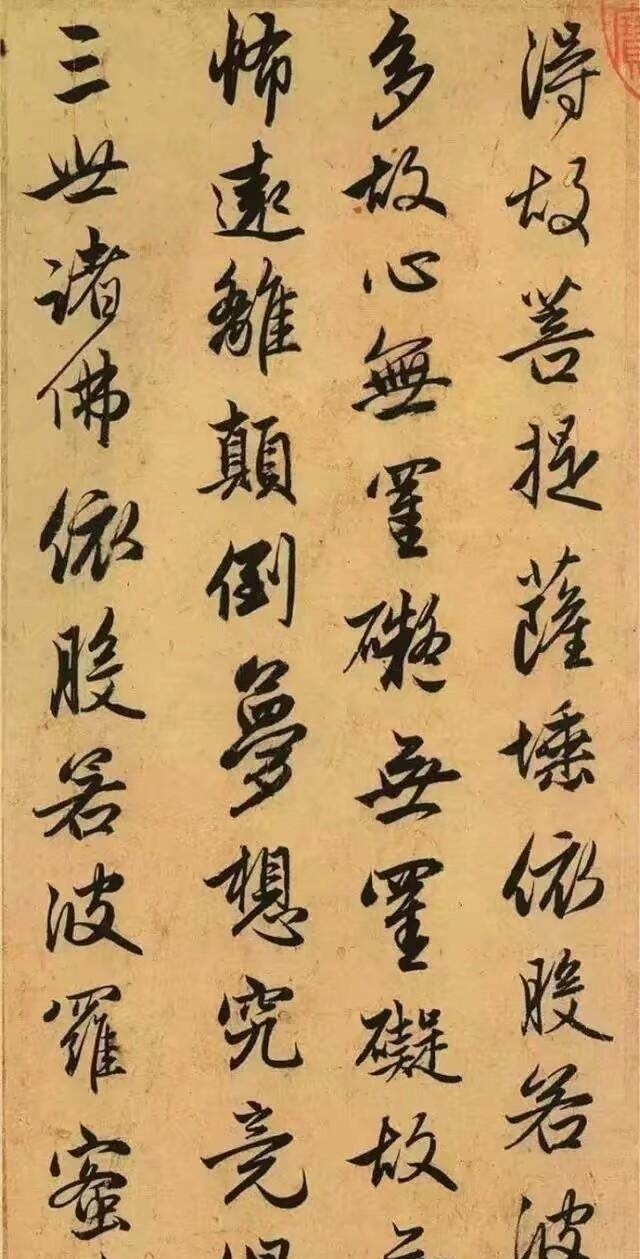 得故菩提薩埵依般若波
多故心無罣礙無罣礙故
怖遠離顛倒夢想究竟
三世諸佛依般若波羅蜜